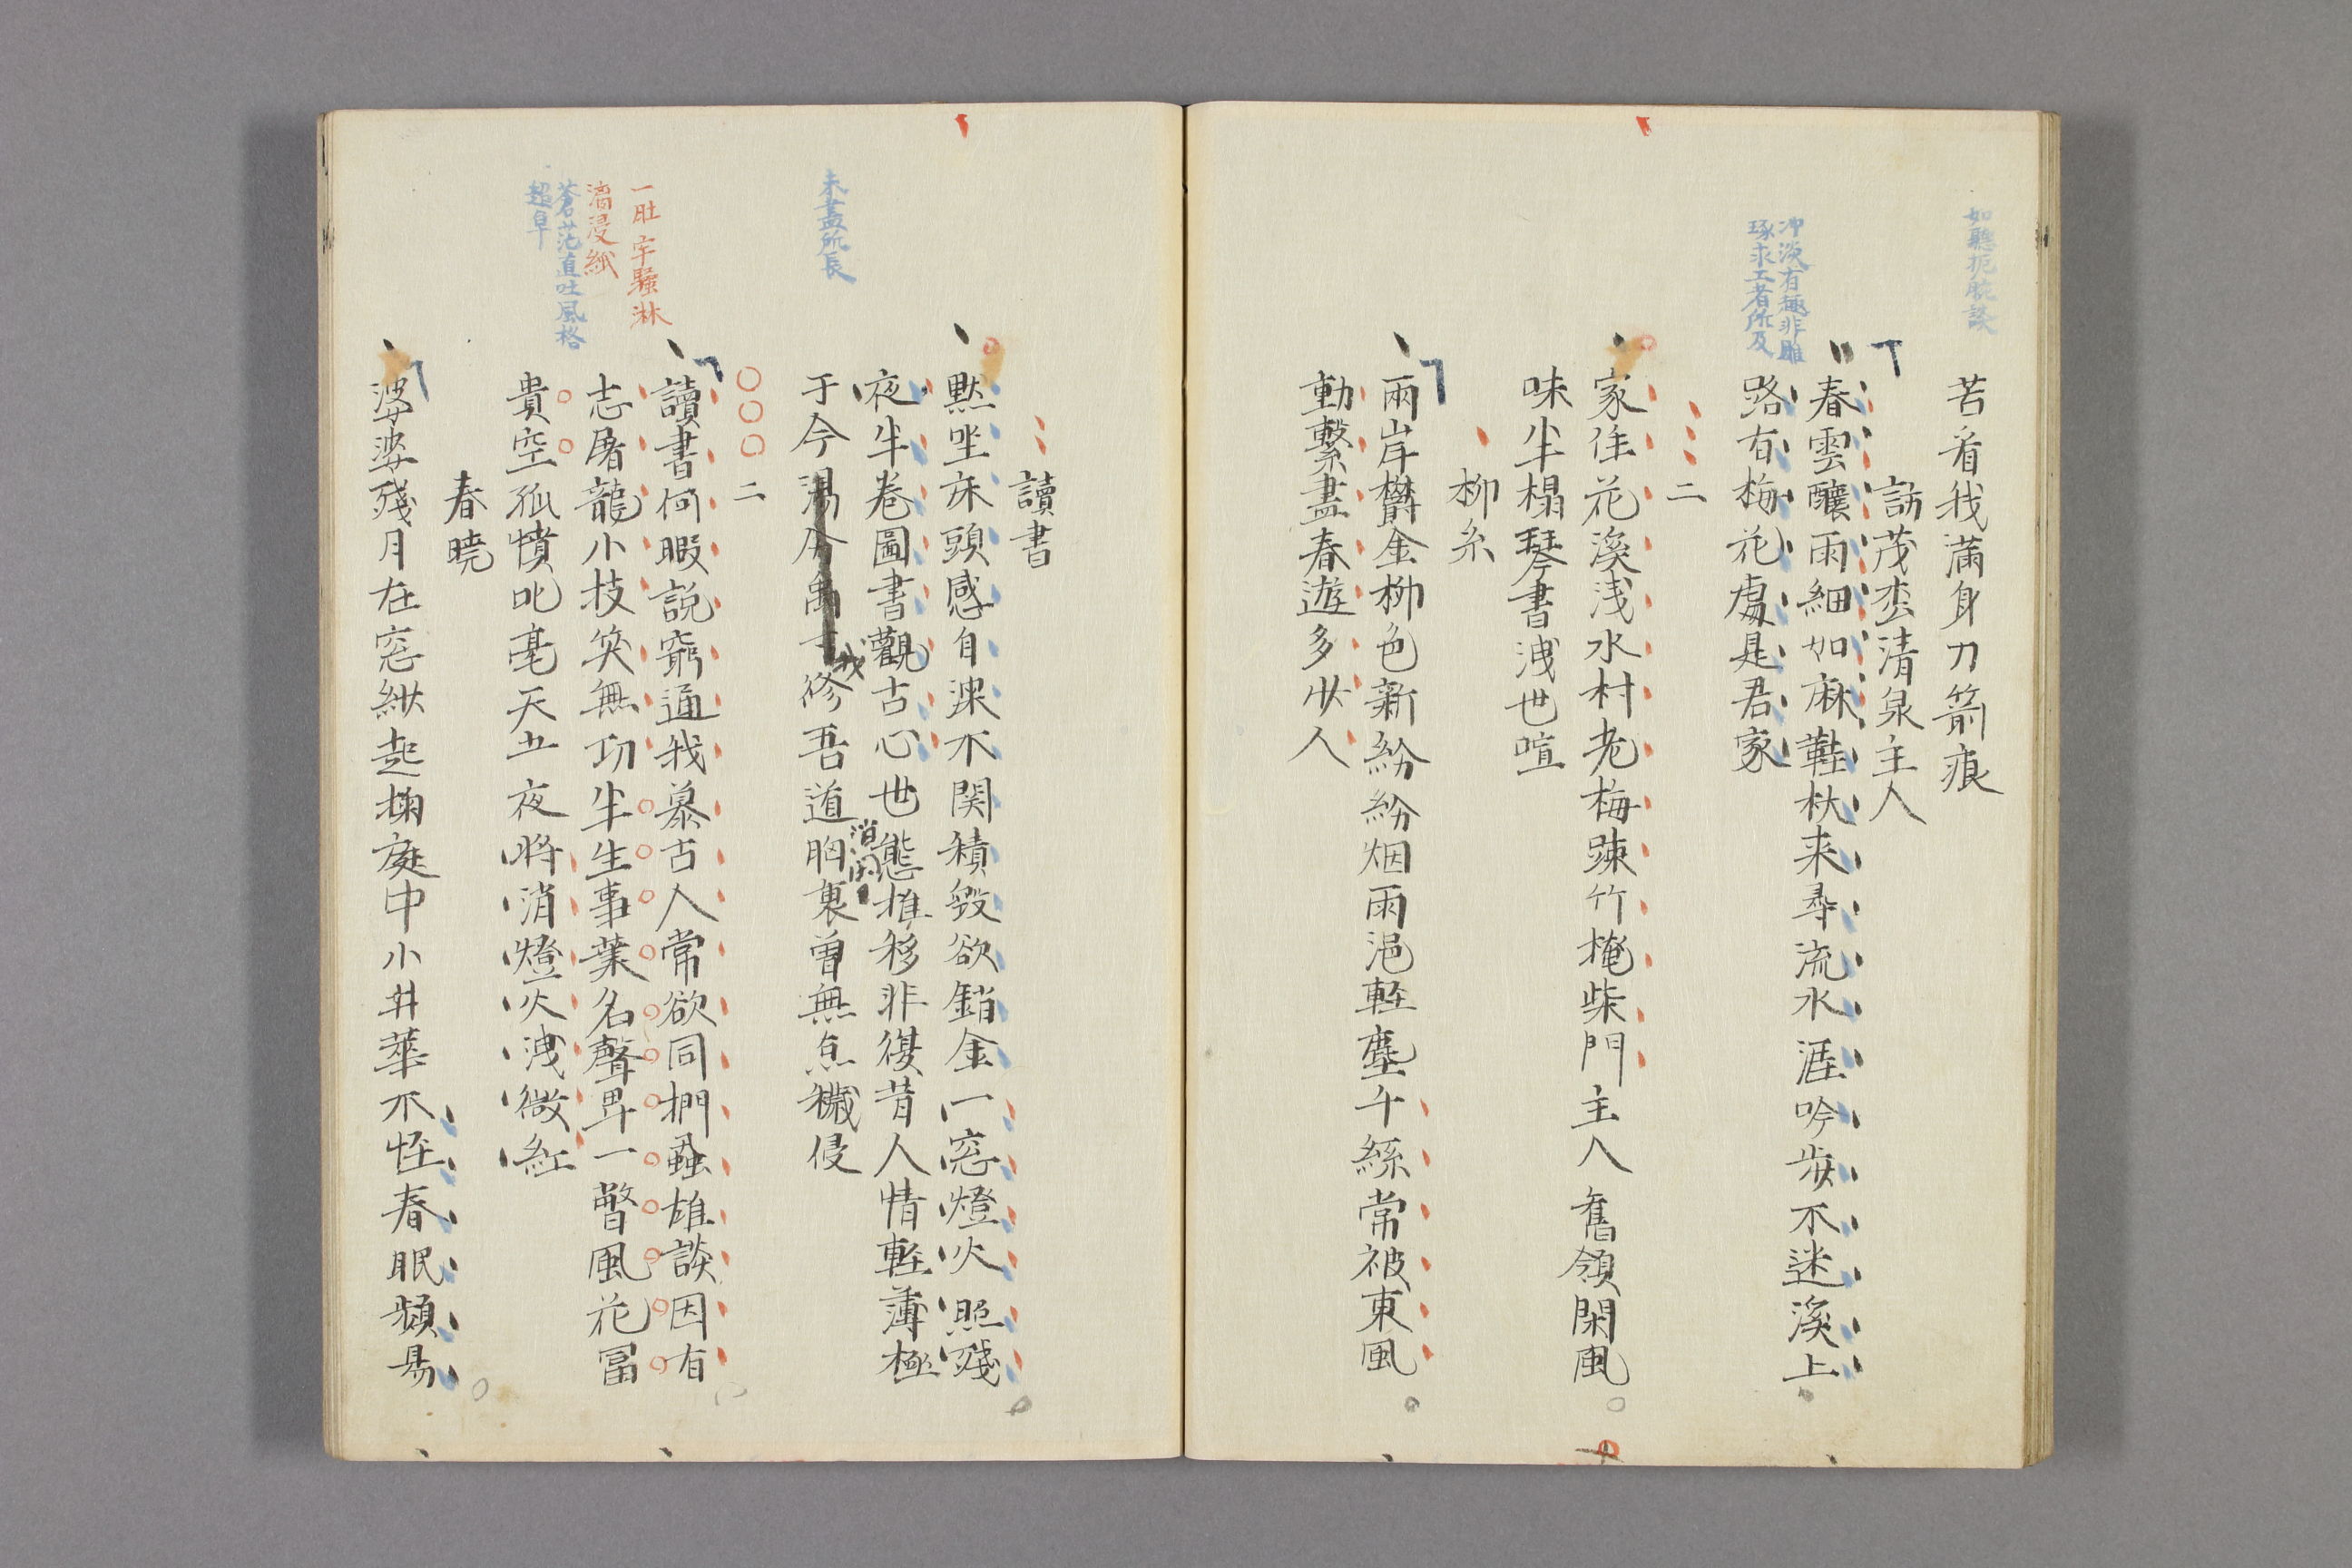 如聽扼腕談
苦看我滿身刀箭痕
訪茂松清泉主人
冲淡有趣非雕
琢求工者所及
春雲釀雨細如麻鞋杖来尋流水涯吟歩不迷溪上
路有梅花處是君家
二
家住花溪浅水村老梅疎竹掩柴門主人舊領閑風
味半榻琴書洩世喧
柳糸
兩岸欝金柳色新紛紛烟雨浥軽塵千絲常被東風
動繫盡春遊多少人
讀書
未盡所長
黙坐床頭感自深不関積毀欲銷金一窓燈火照殘
夜半巻圖書觀古心世態推移非復昔人情軽薄極
于今 我修吾道胸裏曽無点穢侵
消閑
二
一肚牢騷淋
漓浸紙
蒼茫直吐風格
超卓
讀書何暇説窮通我慕古人常欲同捫蝨雄談因有
志屠龍小技笑無功半生事業名聲畀一瞥風花冨
貴空孤憤叱毫天五夜将消燈火洩微紅
春曉
婆娑殘月在窓紗起掬庭中小井華不怪春眠頻易